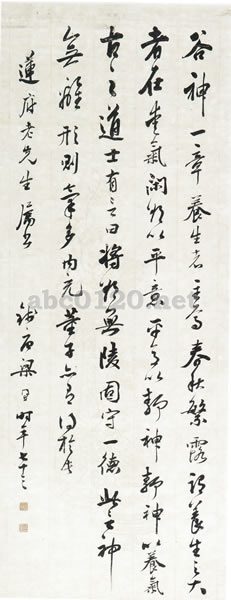 谷神一章養生者言焉春秋繁露謂養生之大
者在愛氣閑欲以平意平意以靜神靜神以養氣
古之道士有言曰將欲無陵固守一德此言神
無離形則氣多內充董子亦有得於此
蓮府老先生屬書
石梁同時年七十三
abc0120.net